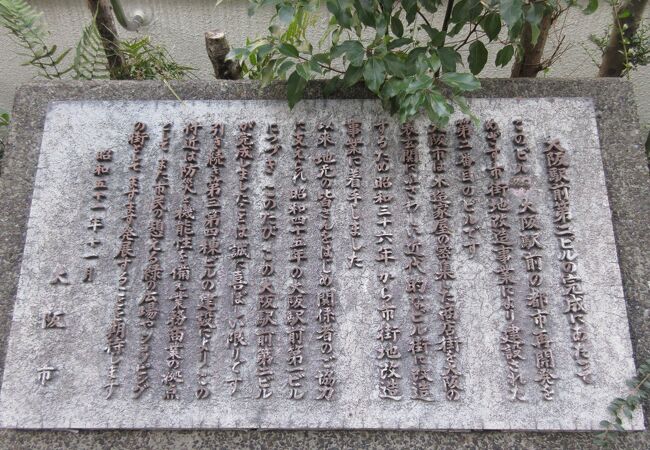 大阪駅前第二ビルの完成にあたって
このビルは 大阪駅前の都市再開発を
めざす市街地改造事業により 建設された
第二番目のビルです
大阪市は木造家屋の密集した商店街を大阪の
表玄関にふさわしい近代的なビル街に改造
するため昭和三十六年から市街地改造
事業に着手しました
以来 地元の皆さんをはじめ 関係者のご協力
に支えられ 昭和四十五年の大阪駅前第一ビル
につづき このたび この大阪駅前第二ビル
が完成しましたことは 誠に喜ばしい限りです
引き続き第三 第四棟 の建設により この
付近は防災と機能性を備えた商業の拠点
として また市民の憩える緑の広場やショッピング
の街として ますます発展することを期待します
昭和五十一年十一月
大阪市